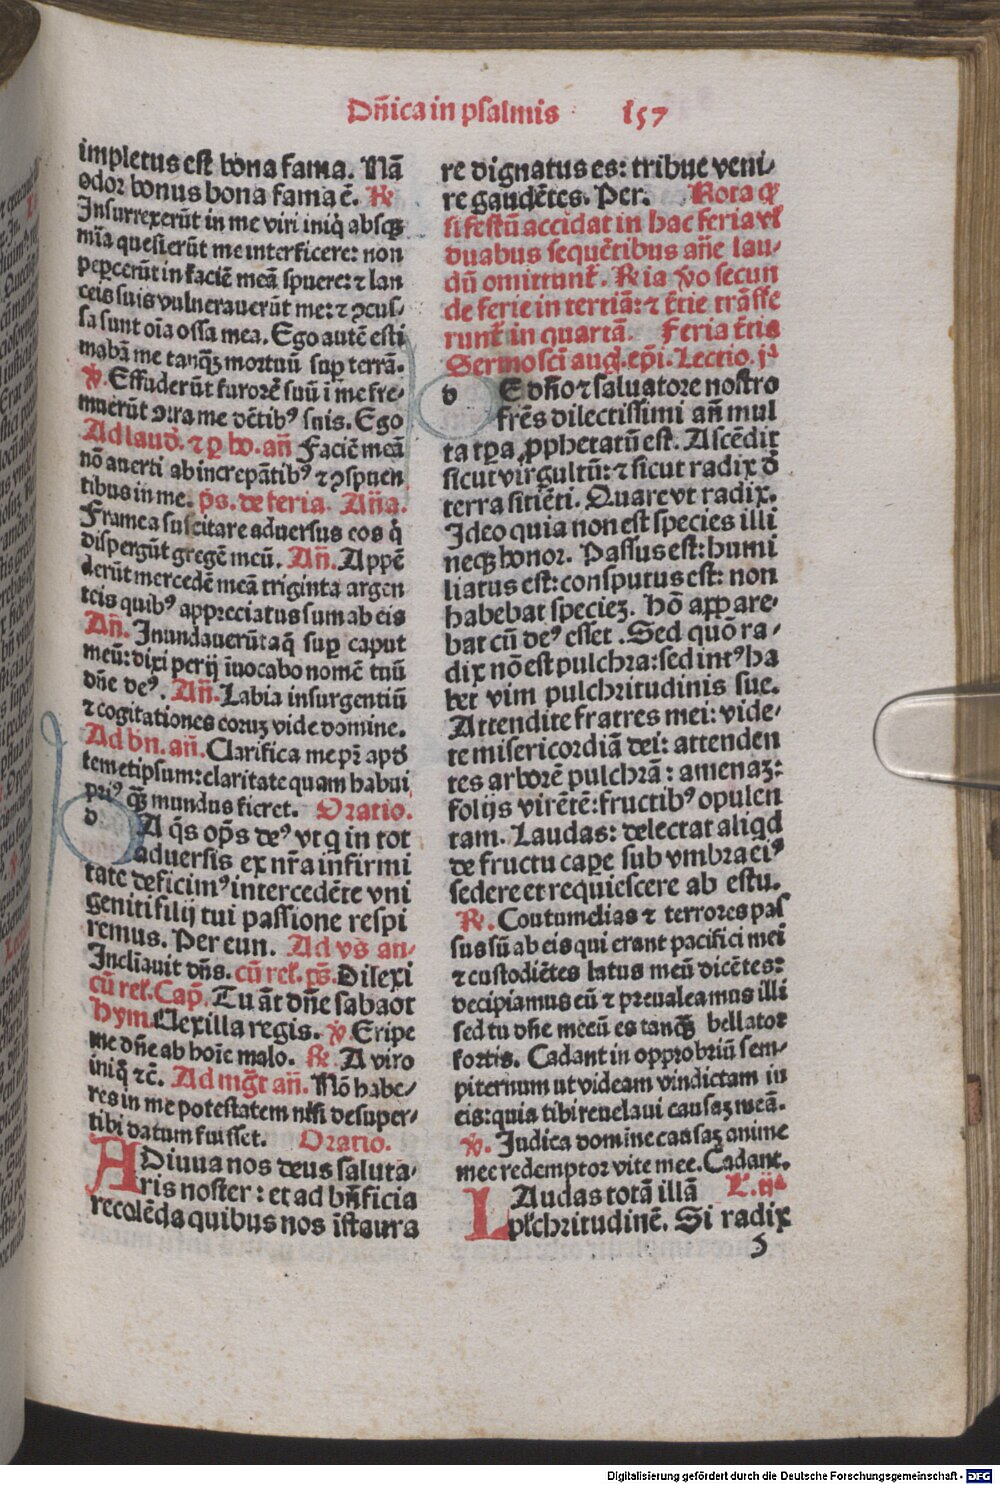 Dñica in psalmis 157
impletus est bona fama. Nã
odor bonus bona fama ē. ℟
Insurrexerũt in me viri iniq̃ absqꝫ
mĩa quesierũt me interficere: non
pepercerũt in faciē meã spuere: ⁊ lan
ceis suis vulnerauerũt me: ⁊ ꝯcus-
sa sunt oĩa ossa mea. Ego autē esti
mabã me tanq̃ꝫ mortuũ suꝑ terrã.
℣. Effuderũt furorē suũ ĩ me fre-
muerũt ꝯtra me dētibꝰ suis. Ego
Ad laud̃. ⁊ ꝑ ho. añ Faciē meã
nõ auerti ab increpãtibꝰ ⁊ ꝯspuen
tibus in me. p̃s. de feria. Añ a.
Framea suscitare aduersus eos q̃
dispergũt gregē meũ. Añ. Appē
derũt mercedē meã triginta argen
teis quibꝰ appreciatus sum ab eis
Añ. Inundauerũt aq̃ suꝑ caput
meũ: dixi perij ĩuocabo nomē tuũ
dñe deꝰ. Añ. Labia insurgentiũ
⁊ cogitationes eoruꝫ vide domine.
Ad bñ. añ. Clarifica me pr̃ apd̃
temetipsum: claritate quam habui
priꝰ q̃ꝫ mundus fieret. Oratio.
d A q̃s op̃s deꝰ vt q̃ in tot
aduersis ex nr̃a infirmi
tate deficimꝰ intercedēte vni
geniti filij tui passione respi
remus. Per eun. Ad vs̃ an-
Inclĩauit dñs. cũ rel̃. p̃s. Dilexi
cũ rel̃. Cap̃. Tu aũt dñe sabaot
Hym. Vexilla regis. ℣ Eripe
me dñe ab hoĩe malo. ℟ A viro
iniq̃ ⁊c̃. Ad mg̃t añ. Nõ habe-
res in me potestatem nisi desuper-
tibi datum fuisset. Oratio.
ADiuua nos deus saluta-
ris noster: et ad bñficia
recolēda quibus nos ĩstaura
re dignatus es: tribue veni-
re gaudētes. Per. Nota q̃
si festũ accidat in hac feria vl̃
duabus sequētibus añe lau-
dũ omittunt̃. ℟ia ṽo secun
de ferie in tertiã: ⁊ t̃tie trãsfe
runt̃ in quartã. Feria t̃tia
Sermo scĩ aug̃. ep̃i. Lectio. jᵃ
d E dño ⁊ saluatore nostro
frēs dilectissimi añ mul
ta tꝑa ꝓphetatũ est. Ascēdit
sicut virgultũ: ⁊ sicut radix d̃
terra sitiēti. Quare vt radix.
Ideo quia non est species illi
neqꝫ honor. Passus est: humi
liatus est: consputus est: non
habebat specieꝫ. Hõ appare-
bat cũ deꝰ esset. Sed quõ ra-
dix nõ est pulchra: sed intꝰ ha
bet vim pulchritudinis sue.
Attendite fratres mei: vide-
te misericordiã dei: attenden
tes arborē pulchrã: amenaꝫ:
folijs virētē: fructibꝰ opulen
tam. Laudas: delectat aliqd
de fructu capere sub vmbra eiꝰ
sedere et requiescere ab estu.
℟. Contumelias ⁊ terrores pas
sus sũ ab eis qui erant pacifici mei
⁊ custodiētes latus meũ dicētes:
decipiamus eũ ⁊ preualeamus illi
sed tu dñe mecũ es tanq̃ꝫ bellator
fortis. Cadant in opprobriũ sem-
piternum ut videam vindictam in
eis: quia tibi reuelaui causaꝫ meã.
℣. Iudica domine causaꝫ anime
mee redemptor vite mee. Cadant.
LAudas totã illã L. ijᵃ
pl̃chritudinē. Si radix
5
Digitalisierung gefördert durch die Deutsche Forschungsgemeinschaft - DFG